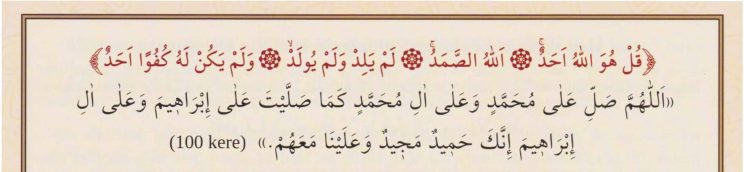 ﴿قُلْ هُوَ اللّٰهُ اَحَدٌۚ ۞ اَللّٰهُ الصَّمَدُۚ ۞ لَمْ يَلِدْ وَلَمْ يُولَدْۙ ۞ وَلَمْ يَكُنْ لَهُ كُفُوًا اَحَدٌ﴾
«اَللّٰهُمَّ صَلِّ عَلٰى مُحَمَّدٍ وَعَلٰى اٰلِ مُحَمَّدٍ كَمَا صَلَّيْتَ عَلٰى إِبْرَاهِيمَ وَعَلٰى اٰلِ
إِبْرَاهِيمَ إِنَّكَ حَمِيدٌ مَجِيدٌ وَعَلَيْنَا مَعَهُمْ.» (100 kere)